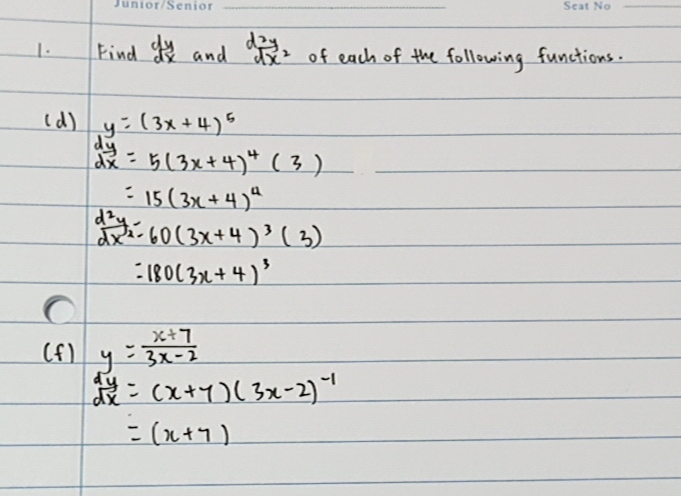 Junior/Senior Seat No
1. Find dy/dx and d²y/dx² of each of the following functions.
(d) y = (3x+4)⁵
dy/dx = 5(3x+4)⁴ (3)
= 15(3x+4)⁴
d²y/dx² = 60(3x+4)³ (3)
= 180(3x+4)³
(f) y = x+7/3x-2
dy/dx = (x+7)(3x-2)⁻¹
= (x+7)